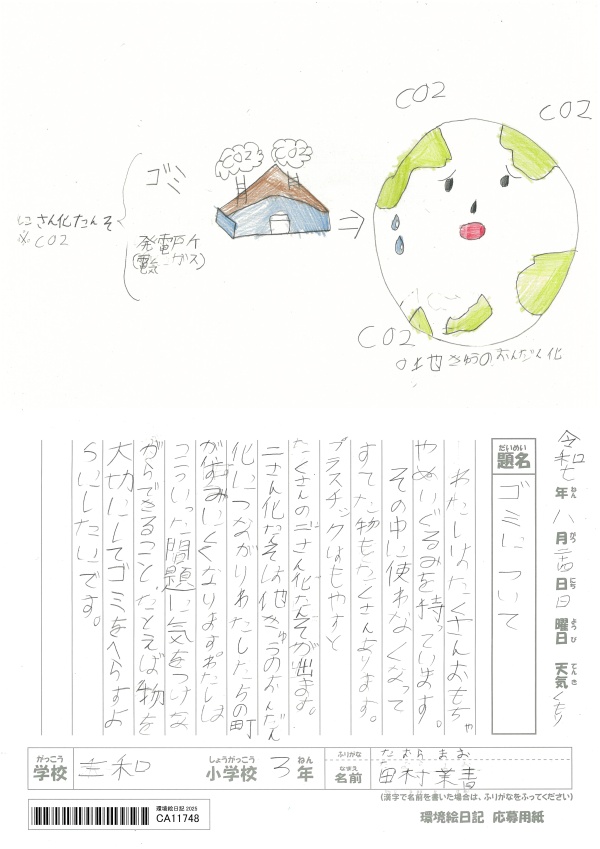 CO2
CO2
CO2
CO2
ゴミ
にさん化たんそ
※CO2
発電所
(電気ガス)
CO2
地きゅうのおんだん化
令和七年八月 日 日曜日 天気くもり
題名 ゴミについて
わたしはたくさんおもちゃ
やぬいぐるみを持っています。
その中に使わなくなって
すてた物もたくさんあります。
プラスチックはもやすと
たくさんのにさん化たんそが出ます。
二さん化たんそは地きゅうのおんだん
化につながりわたしたちの町
がすみにくくなります。わたしは
こういった問題に気をつけな
がらできること、たとえば物を
大切にしてゴミをへらすよ
うにしたいです。
がっこう
学校
しょうがっこう
小学校 3年
ふりがな たむらまお
なまえ
名前 田村茉青
(漢字で名前を書いた場合は、ふりがなをふってください)
環境絵日記 2025
CA11748
環境絵日記 応募用紙